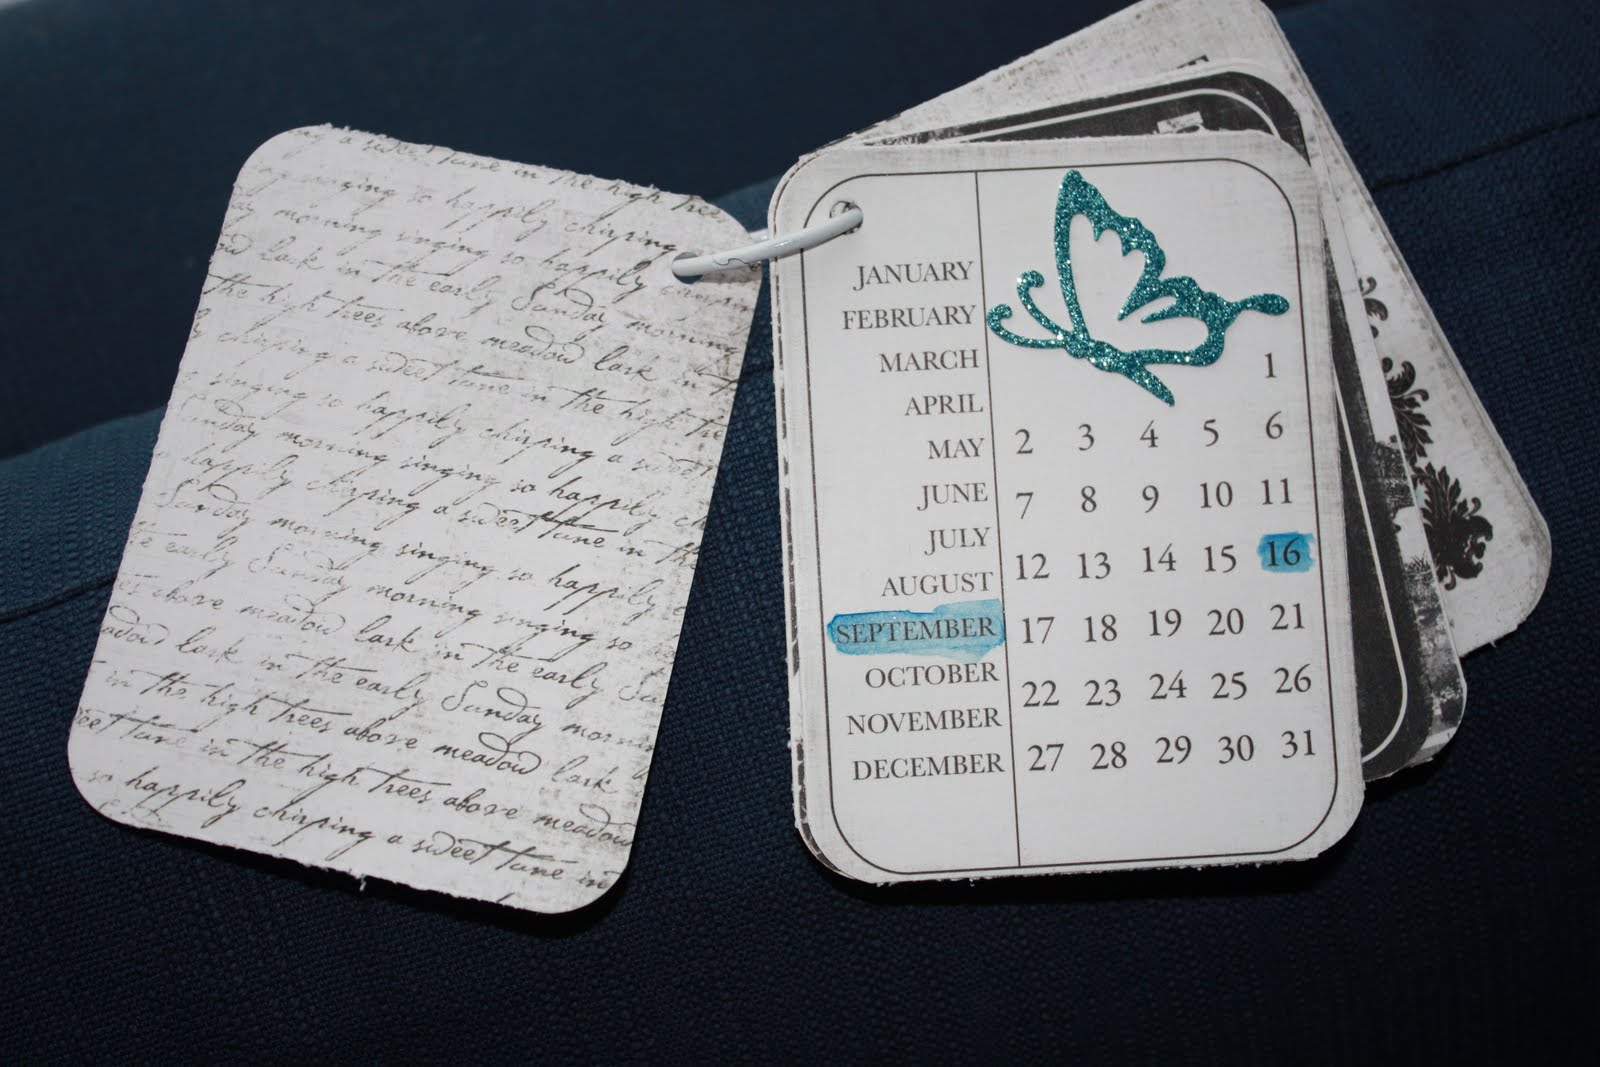 a sweet tune in the high trees
singing so happily chirping
morning singing so happily
lark in the early Sunday morning
the high trees above meadow lark in
chirping a sweet tune in the high
singing so happily chirping a sweet
Sunday morning singing so happily
happily chirping a sweet tune in the
Sunday morning singing so happily
early Sunday morning singing so
above meadow lark in the early
lark in the early Sunday
in the high trees above meadow lark
tune in the high trees above meadow
so happily chirping a sweet tune in
JANUARY
FEBRUARY
MARCH
APRIL
MAY
JUNE
JULY
AUGUST
SEPTEMBER
OCTOBER
NOVEMBER
DECEMBER
1
2 3 4 5 6
7 8 9 10 11
12 13 14 15 16
17 18 19 20 21
22 23 24 25 26
27 28 29 30 31